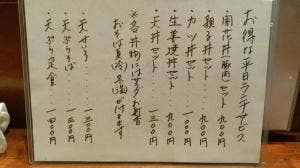 お得な平日ランチサービス
・開花丼(豚肉)セット 九〇〇円
・親子丼セット 九〇〇円
・カツ丼セット 一〇〇〇円
・生姜焼丼セット 九〇〇円
・天丼セット 一三〇〇円
※各丼物にはサラダお新香
おそば(冷)(温)が付きます
・天せいろ 一三〇〇円
・天ぷらそば 一三〇〇円
・天ぷら定食 一四〇〇円